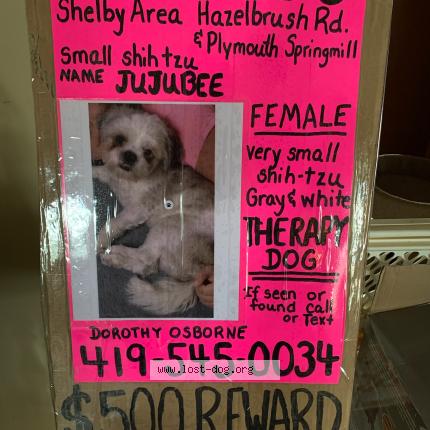 Shelby Area Hazelbrush Rd.
& Plymouth Springmill
small shih tzu
NAME JUJUBEE
FEMALE
very small
shih-tzu
Gray & white
THERAPY
DOG
If seen or
found call
or Text
DOROTHY OSBORNE
419-545-0034
www.lost-dog.org
$500 REWARD